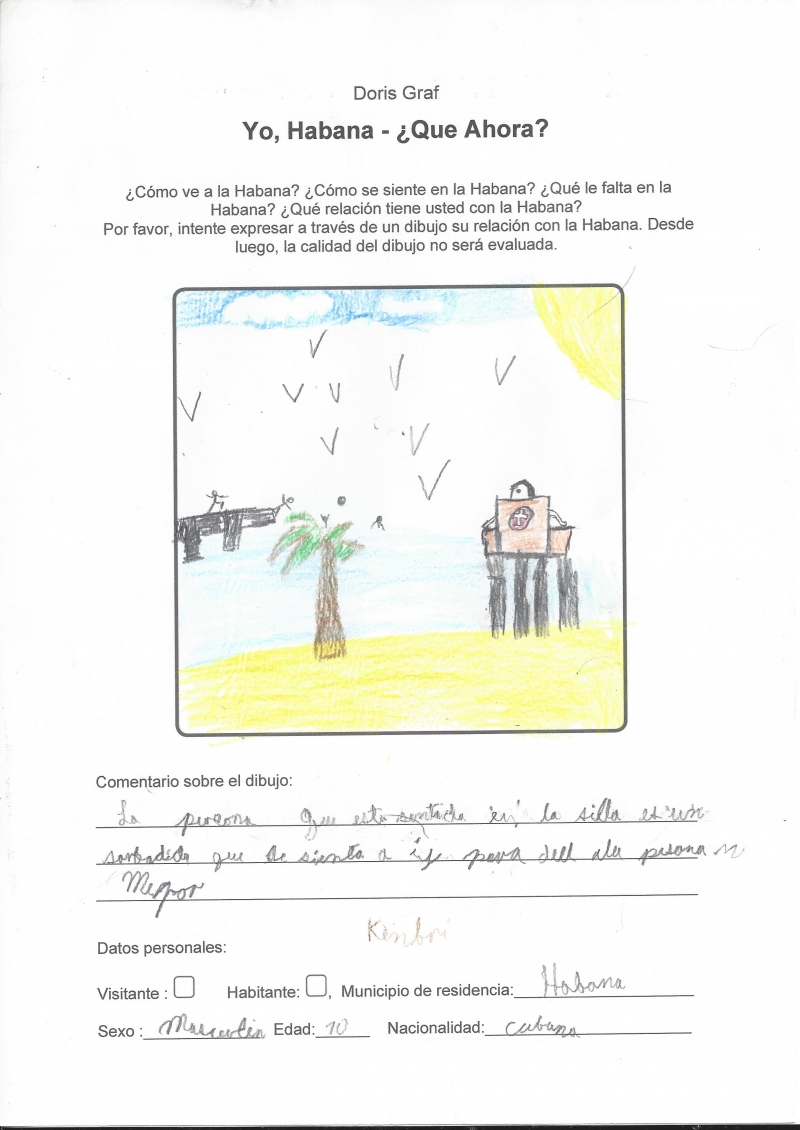 Doris Graf
Yo, Habana - ¿Que Ahora?
¿Cómo ve a la Habana? ¿Cómo se siente en la Habana? ¿Qué le falta en la
Habana? ¿Qué relación tiene usted con la Habana?
Por favor, intente expresar a través de un dibujo su relación con la Habana. Desde
luego, la calidad del dibujo no será evaluada.
Comentario sobre el dibujo:
La persona que esta sentada en la silla es un
que se sienta a para
Datos personales:
Visitante : Habitante: , Municipio de residencia: Habana
Sexo : Masculin Edad: 10 Nacionalidad: cubana